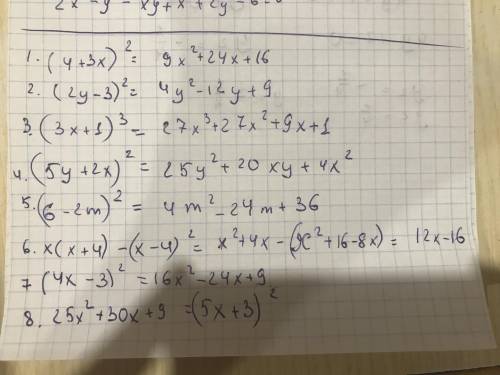 2x - y - xy + x + 2y - 6 = 0
1. (4+3x)² = 9x²+24x+16
2. (2y-3)² = 4y²-12y+9
3. (3x+1)³ = 27x³+27x²+9x+1
4. (5y+2x)² = 25y²+20xy+4x²
5. (6-2m)² = 4m²-24m+36
6. x(x+4)-(x-4)² = x²+4x-(x²+16-8x) = 12x-16
7 (4x-3)² = 16x²-24x+9
8. 25x²+30x+9 = (5x+3)²